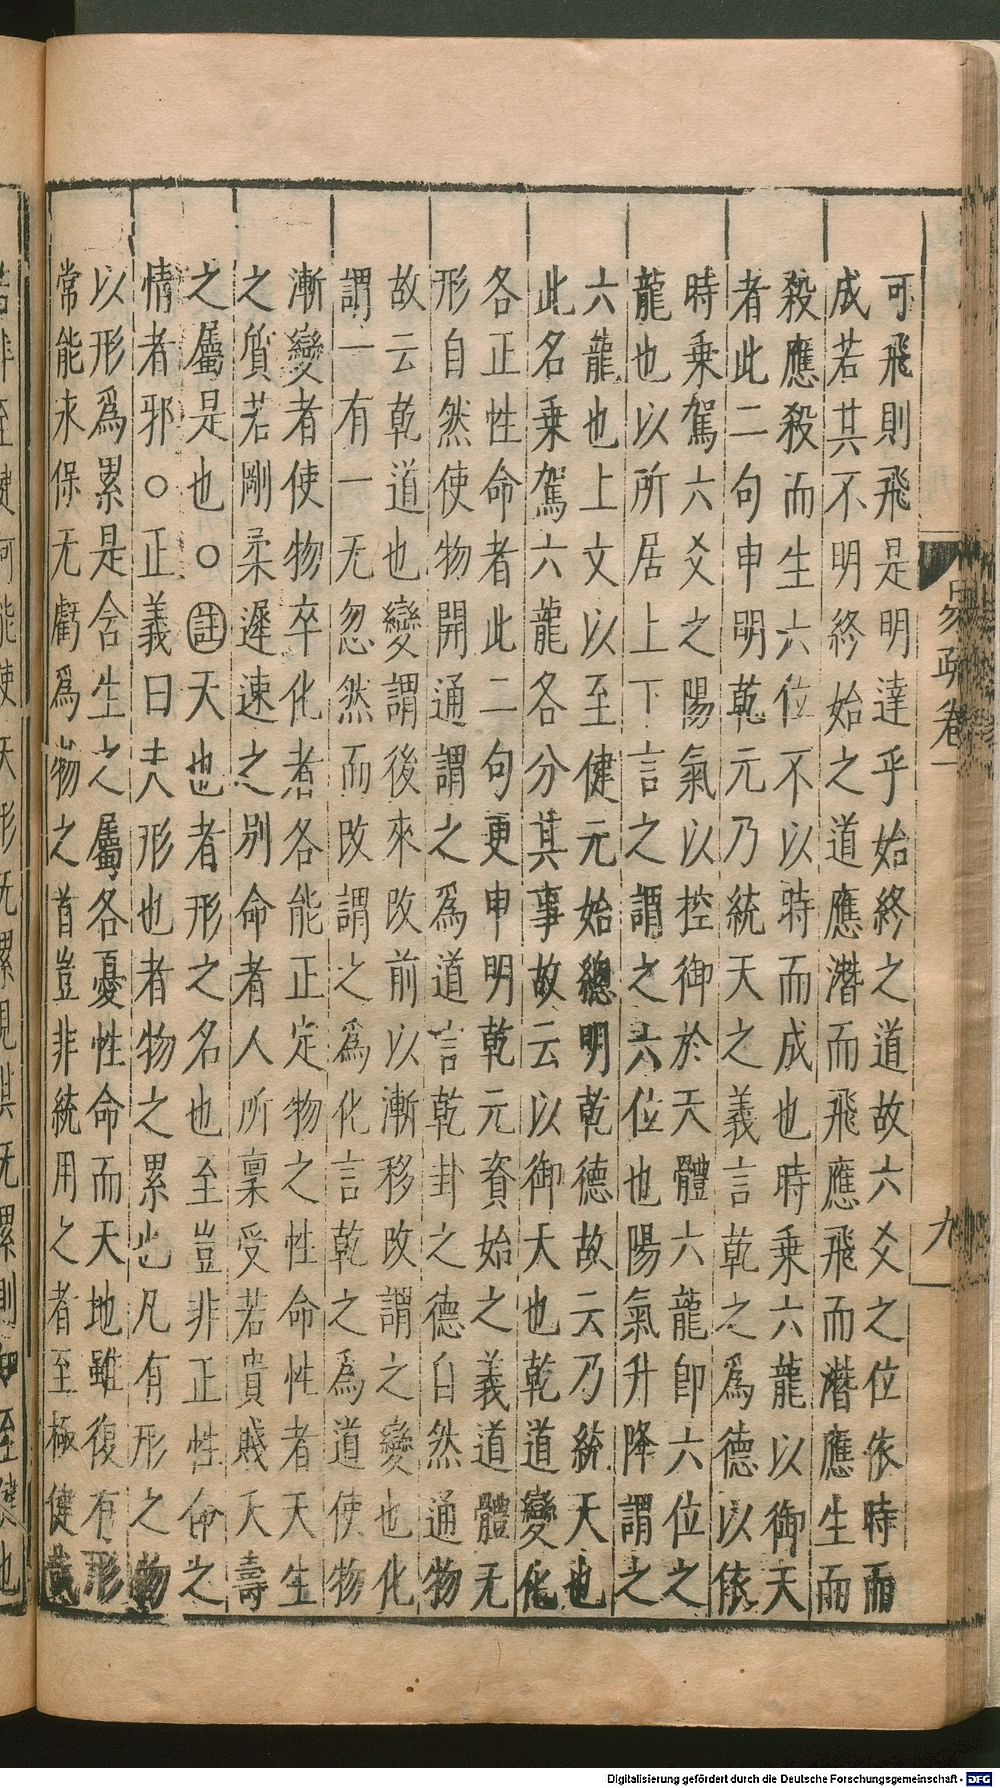 可飛則飛是明達乎始終之道故六爻之位依時而
成若其不明終始之道應潛而飛應飛而潛應生而
殺應殺而生六位不以時而成也時乗六龍以御天
者此二句申明乾元乃統天之義言乾之爲德以依
時乗駕六爻之陽氣以控御於天體六龍卽六位之
龍也以所居上下言之謂之六位也陽氣升降謂之
六龍也上文以至健元始總明乾德故云乃統天也
此名乗駕六龍各分其事故云以御大也乾道變化
各正性命者此二句更申明乾元資始之義道體无
形自然使物開通謂之爲道言乾卦之德自然通物
故云乾道也變謂後來改前以漸移改謂之變也化
謂一有一无忽然而改謂之爲化言乾之爲道使物
漸變者使物卒化者各能正定物之性命性者天生
之質若剛柔遲速之別命者人所稟受若貴賤夭壽
之屬是也○註天也者形之名也至豈非正性命之
情者邪○正義曰夫形也者物之累也凡有形之物
以形爲累是含生之屬各憂性命而天地雖復有形
常能永保无虧爲物之首豈非統用之者至極健哉
易疏卷一
九
Digitalisierung gefördert durch die Deutsche Forschungsgemeinschaft - DFG